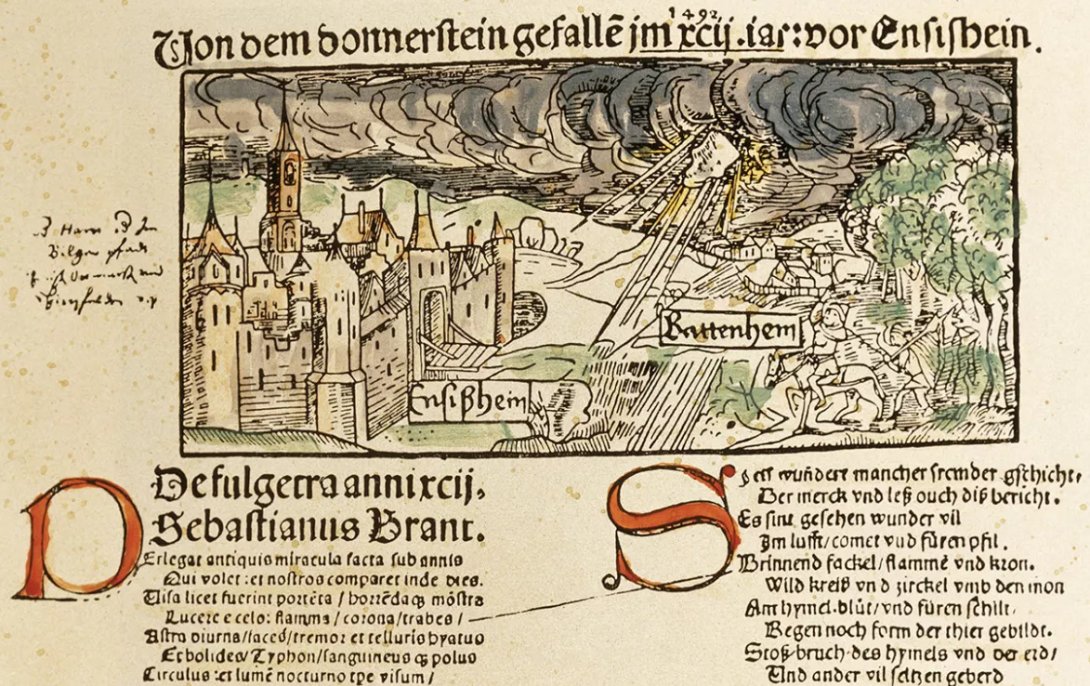 1492
Von dem donnerstein gefallē jm xcij .iar: vor Ensishein.
Battenhem
Ensißhein
De fulgetra anni xcij.
Sebastianus Brant.
PErlegat antiquis miracula facta sub annis
Qui volet: et nostros comparet inde dies.
Uisa licet fuerint portēta / horrēdaqꝫ mōstra
Lucere e celo: flamma / corona / trabes /
Astra diurna / faces / tremor et telluris hyatus
Et bolides / Typhon / sanguineus qꝫ polus
Circulus: et lumē nocturno tpe visum /
Sjch wundert mancher fremder gschicht
Der merck vnd leß ouch diß bericht.
Es sint gesehen wunder vil
Jm lufft / comet vnd füren pfil.
Brinnend fackel / flamme vnd kron.
Wild kreiß vnd zirckel vmb den mon
Am hymel. blüt / vnd füren schilt.
Regen noch form der thier gebildt.
Stoß bruch des hymels vnd der erd /
Und ander vil seltzen geberd